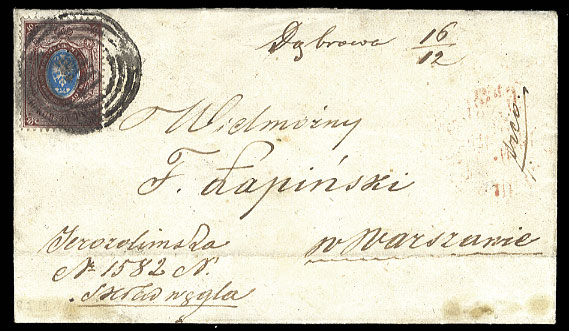 Dąbrowa 16/12
Wielmożny
F. Łapiński
w Warszawie
Jerozolimska
No 1582 N.
Skład węgla